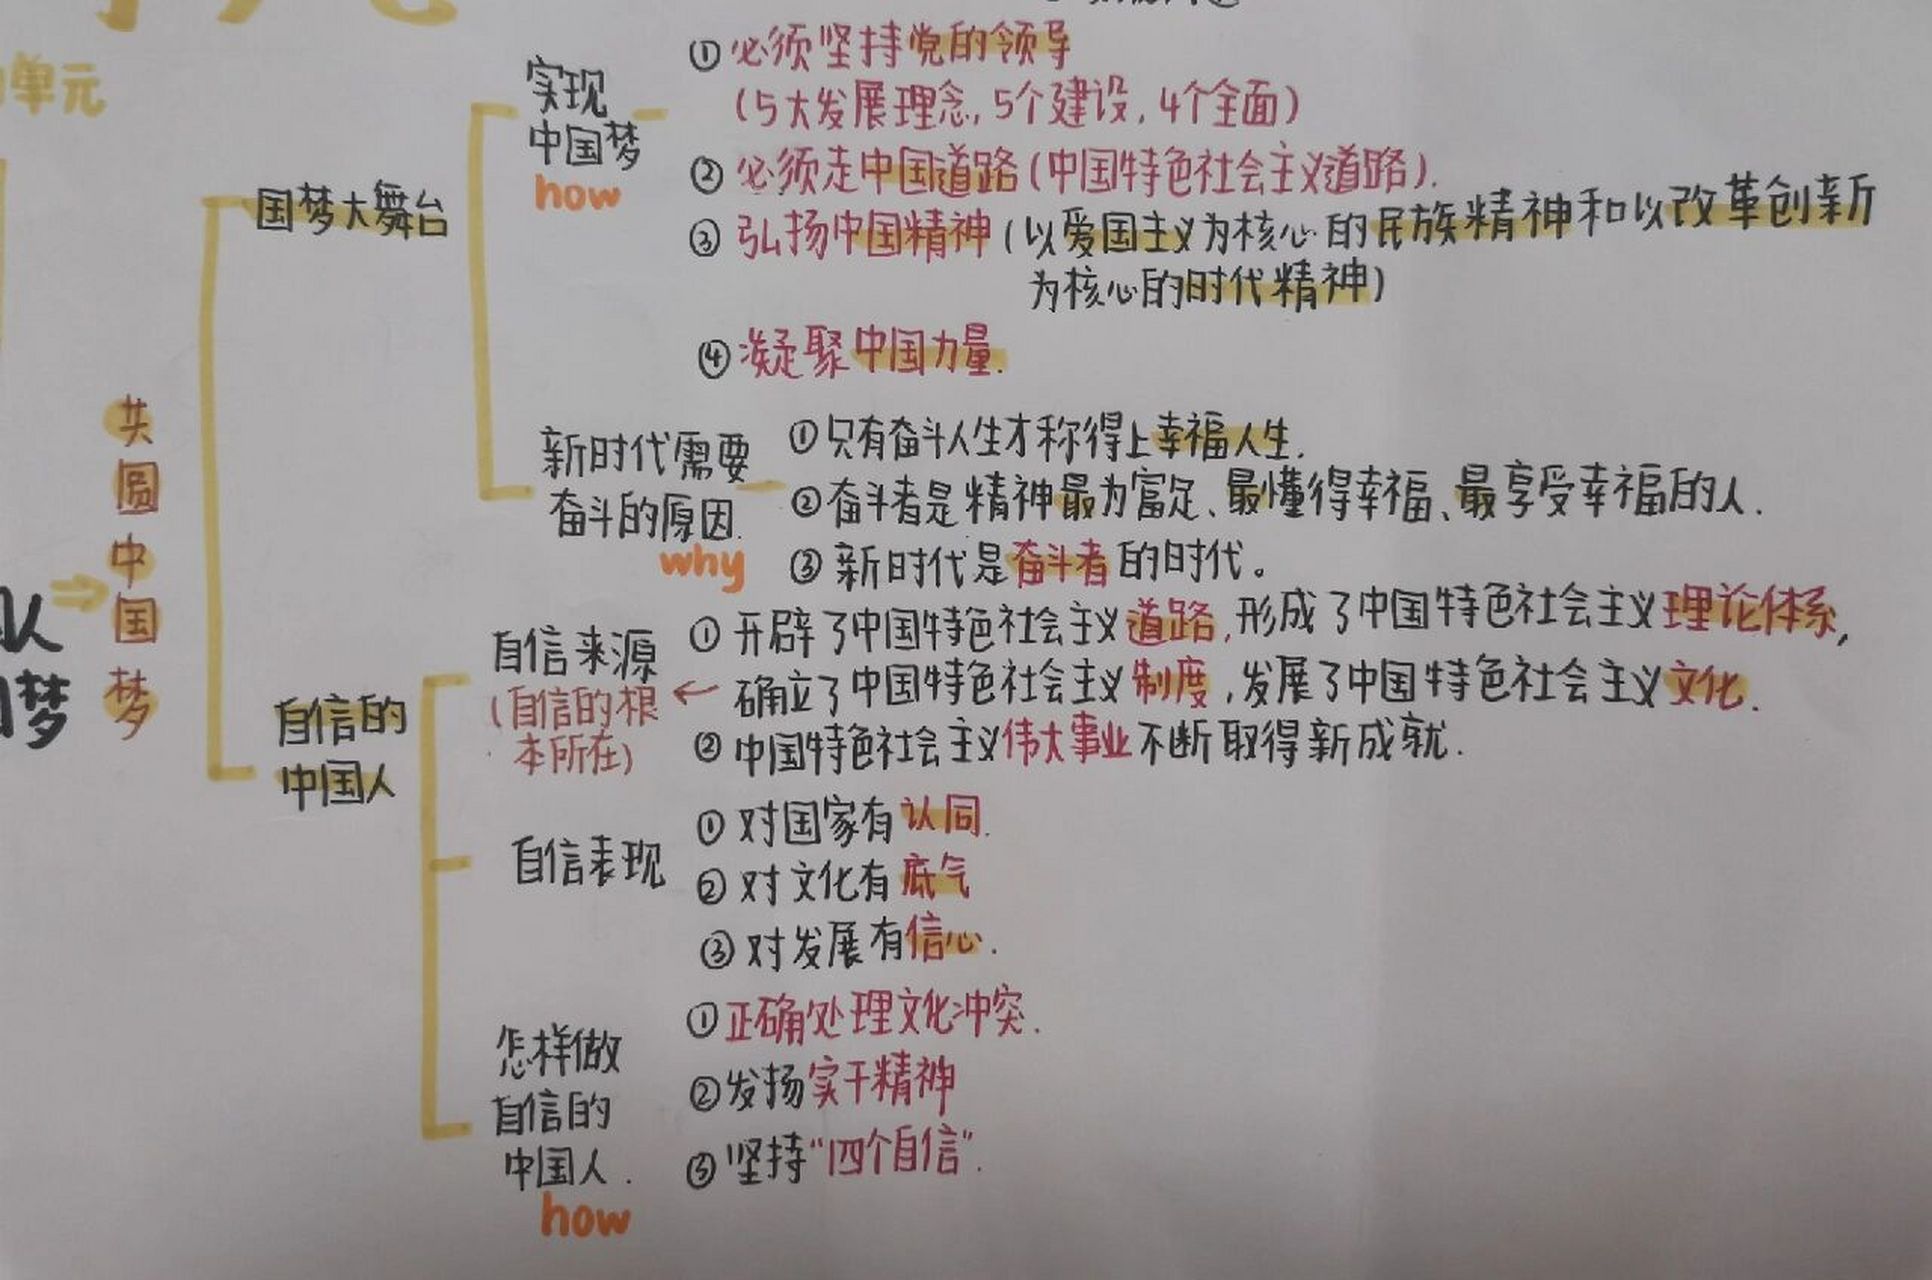 单元
共圆中国梦
梦
国梦大舞台
实现
中国梦
how
① 必须坚持党的领导
(5大发展理念,5个建设,4个全面)
② 必须走中国道路(中国特色社会主义道路).
③ 弘扬中国精神(以爱国主义为核心的民族精神和以改革创新
为核心的时代精神)
④ 凝聚中国力量.
新时代需要
奋斗的原因.
why
①只有奋斗人生才称得上幸福人生.
②奋斗者是精神最为富足、最懂得幸福、最享受幸福的人.
③ 新时代是奋斗者的时代。
自信的
中国人
自信来源
(自信的根
本所在)
① 开辟了中国特色社会主义道路,形成了中国特色社会主义理论体系,
← 确立了中国特色社会主义制度,发展了中国特色社会主义文化.
② 中国特色社会主义伟大事业不断取得新成就.
自信表现
① 对国家有认同.
② 对文化有底气
③ 对发展有信心.
怎样做
自信的
中国人.
how
①正确处理文化冲突.
②发扬实干精神
③坚持“四个自信”.